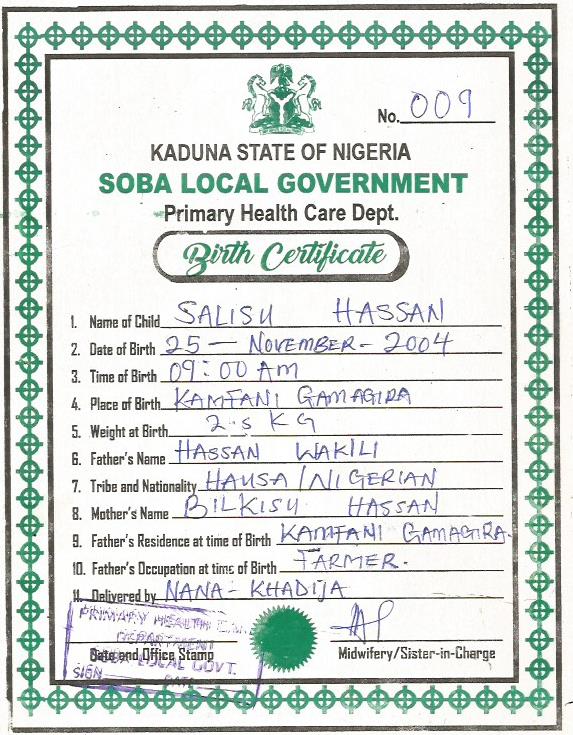 No. 009
KADUNA STATE OF NIGERIA
SOBA LOCAL GOVERNMENT
Primary Health Care Dept.
Birth Certificate
1. Name of Child SALISU HASSAN
2. Date of Birth 25 - NOVEMBER - 2004
3. Time of Birth 09:00 AM
4. Place of Birth KAMFANI GAMAGIRA
5. Weight at Birth 2.5 KG
6. Father's Name HASSAN WAKILI
7. Tribe and Nationality HAUSA/NIGERIAN
8. Mother's Name BILKISU HASSAN
9. Father's Residence at time of Birth KAMFANI GAMAGIRA.
10. Father's Occupation at time of Birth FARMER.
11. Delivered by NANA - KHADIJA
PRIMARY HEALTH
DEPARTMENT
LOCAL GOVT.
SIGN DATE
Date and Office Stamp
Midwifery/Sister-in-Charge